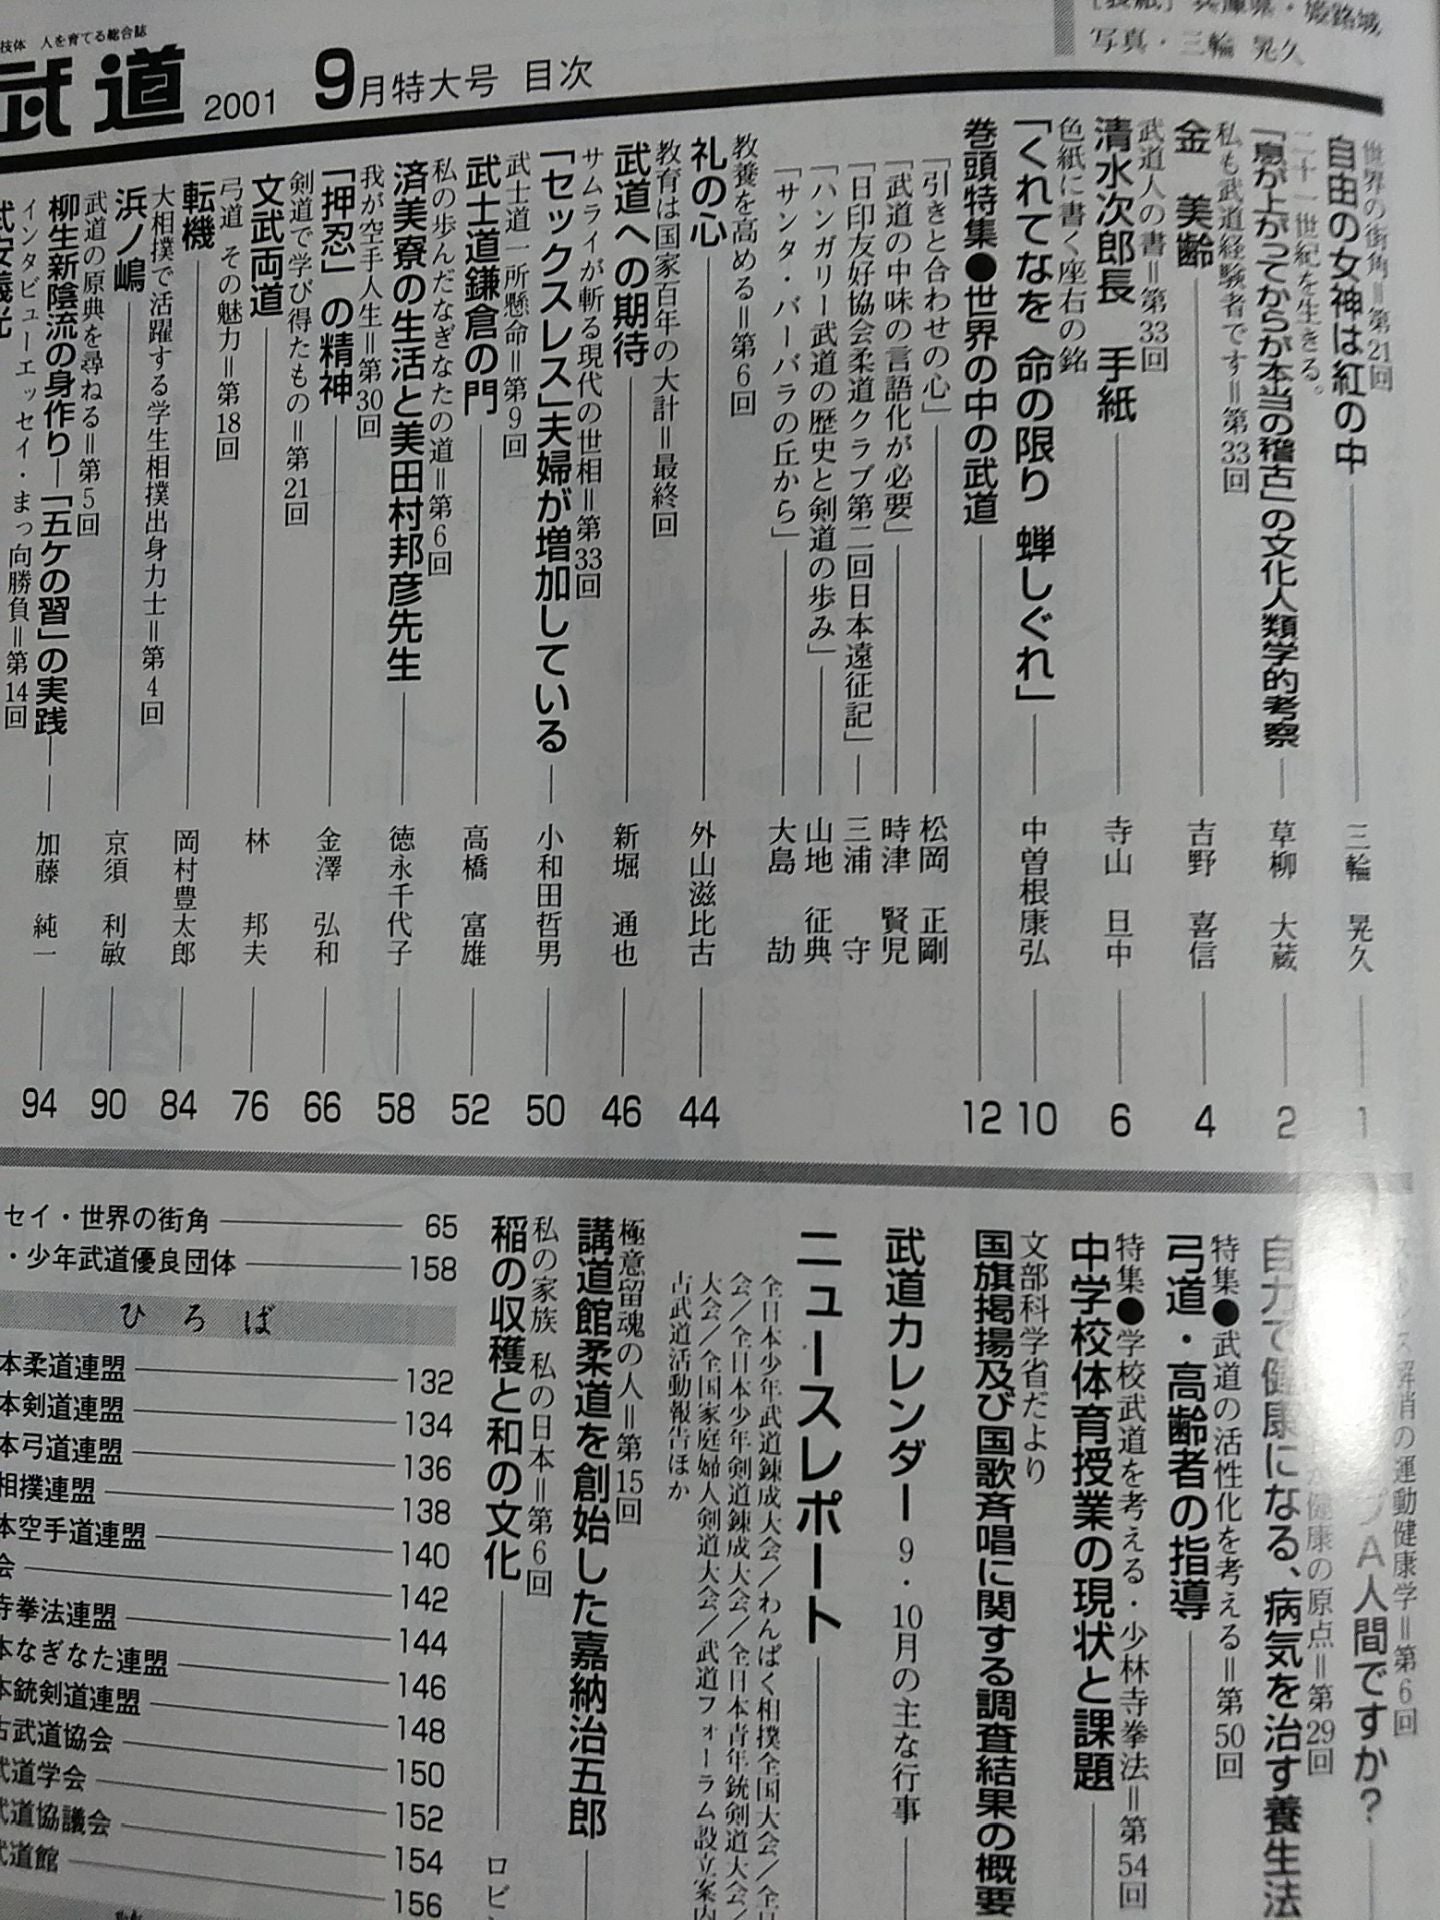 技体 人を育てる総合誌
武道 2001 9月特大号 目次
写真・三輪 晃久
世界の街角＝第21回
自由の女神は紅の中 三輪 晃久 1
二十一世紀を生きる。
「息が上がってからが本当の稽古」の文化人類学的考察 草柳 大蔵 2
私も武道経験者です＝第33回
金 美齢 吉野 喜信 4
武道人の書＝第33回
清水次郎長 手紙 寺山 旦中 6
色紙に書く座右の銘
「くれてなを 命の限り 蝉しぐれ」 中曽根康弘 10
巻頭特集●世界の中の武道 12
「引きと合わせの心」 松岡 正剛
「武道の中味の言語化が必要」 時津 賢児
「日印友好協会柔道クラブ第二回日本遠征記」 三浦 守
「ハンガリー武道の歴史と剣道の歩み」 山地 征典
「サンタ・バーバラの丘から」 大島 劼
教養を高める＝第6回
礼の心 外山滋比古 44
教育は国家百年の大計＝最終回
武道への期待 新堀 通也 46
サムライが斬る現代の世相＝第33回
「セックスレス」夫婦が増加している 小和田哲男 50
武士道一所懸命＝第9回
武士道鎌倉の門 高橋 富雄 52
私の歩んだなぎなたの道＝第6回
済美寮の生活と美田村邦彦先生 徳永千代子 58
我が空手人生＝第30回
「押忍」の精神 金澤 弘和 66
剣道で学び得たもの＝第21回
文武両道 林 邦夫 76
弓道 その魅力＝第18回
転機 岡村豊太郎 84
大相撲で活躍する学生相撲出身力士＝第4回
浜ノ嶋 京須 利敏 90
武道の原典を尋ねる＝第5回
柳生新陰流の身作り―「五ケの習」の実践 加藤 純一 94
インタビューエッセイ・まっ向勝負＝第14回
解消の運動健康学＝第6回
A人間ですか？
健康の原点＝第29回
自力で健康になる、病気を治す養生法
特集●武道の活性化を考える＝第50回
弓道・高齢者の指導
特集●学校武道を考える・少林寺拳法＝第54回
中学校体育授業の現状と課題
文部科学省だより
国旗掲揚及び国歌斉唱に関する調査結果の概要
武道カレンダー 9・10月の主な行事
ニュースレポート
全日本少年武道錬成大会／わんぱく相撲全国大会／全日
会／全日本少年剣道錬成大会／全日本青年銃剣道大会／
大会／全国家庭婦人剣道大会／武道フォーラム設立案内
古武道活動報告ほか
極意留魂の人＝第15回
講道館柔道を創始した嘉納治五郎
私の家族 私の日本＝第6回
稲の収穫と和の文化 ロビ
セイ・世界の街角 65
・少年武道優良団体 158
ひろば
本柔道連盟 132
本剣道連盟 134
本弓道連盟 136
相撲連盟 138
本空手道連盟 140
会 142
寺拳法連盟 144
本なぎなた連盟 146
本銃剣道連盟 148
古武道協会 150
武道学会 152
武道協議会 154
武道館 156